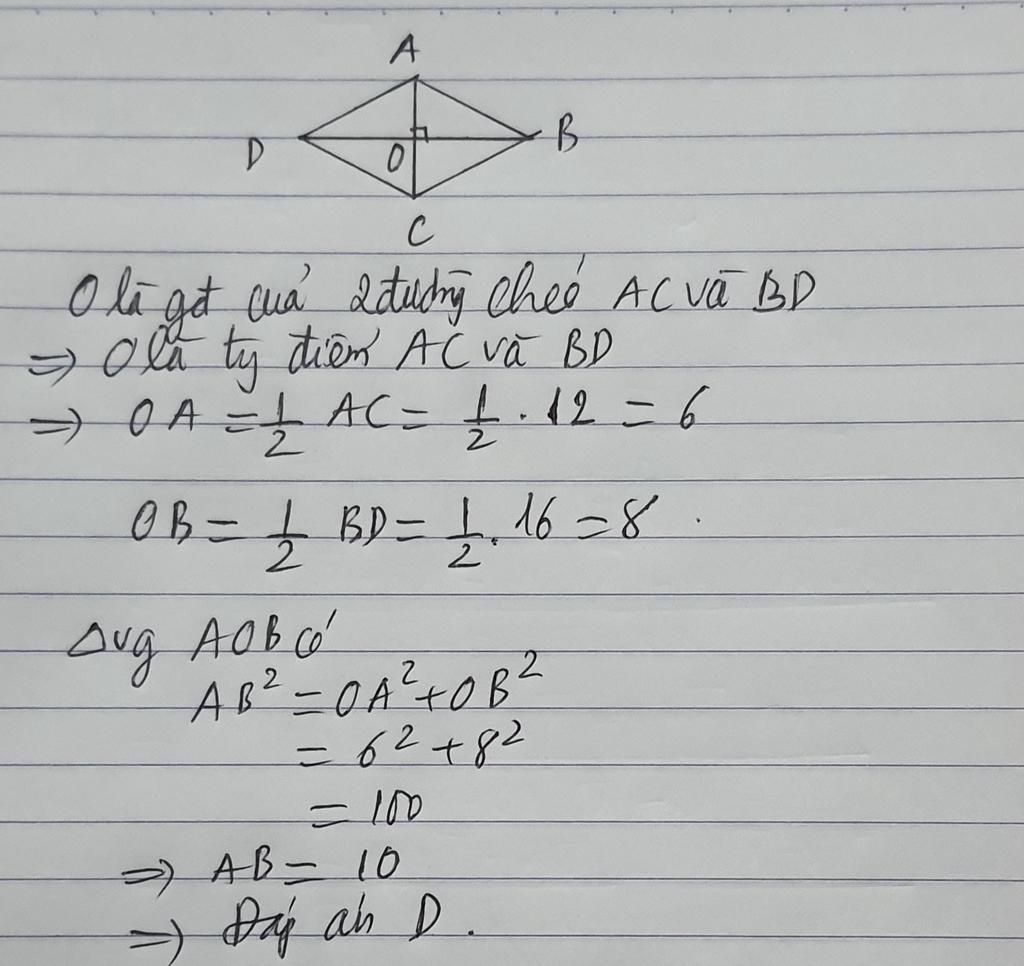 A
D
B
O
C
O là gđ của 2 đường chéo AC và BD
=> O là tg điểm AC và BD
=> OA = 1/2 AC = 1/2 . 12 = 6
OB = 1/2 BD = 1/2 . 16 = 8
Δvg AOB có
AB² = OA² + OB²
= 6² + 8²
= 100
=> AB = 10
=> Đáp án D.